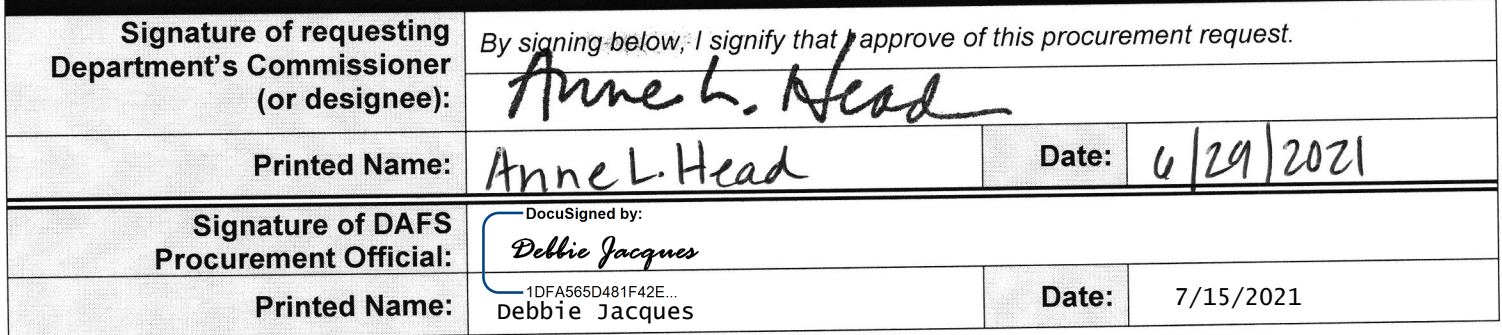 Signature of requesting
Department's Commissioner
(or designee):
By signing below, I signify that I approve of this procurement request.
Anne L. Head
Printed Name:
Anne L. Head
Date:
6/29/2021
Signature of DAFS
Procurement Official:
DocuSigned by:
Debbie Jacques
1DFA565D481F42E...
Printed Name:
Debbie Jacques
Date:
7/15/2021